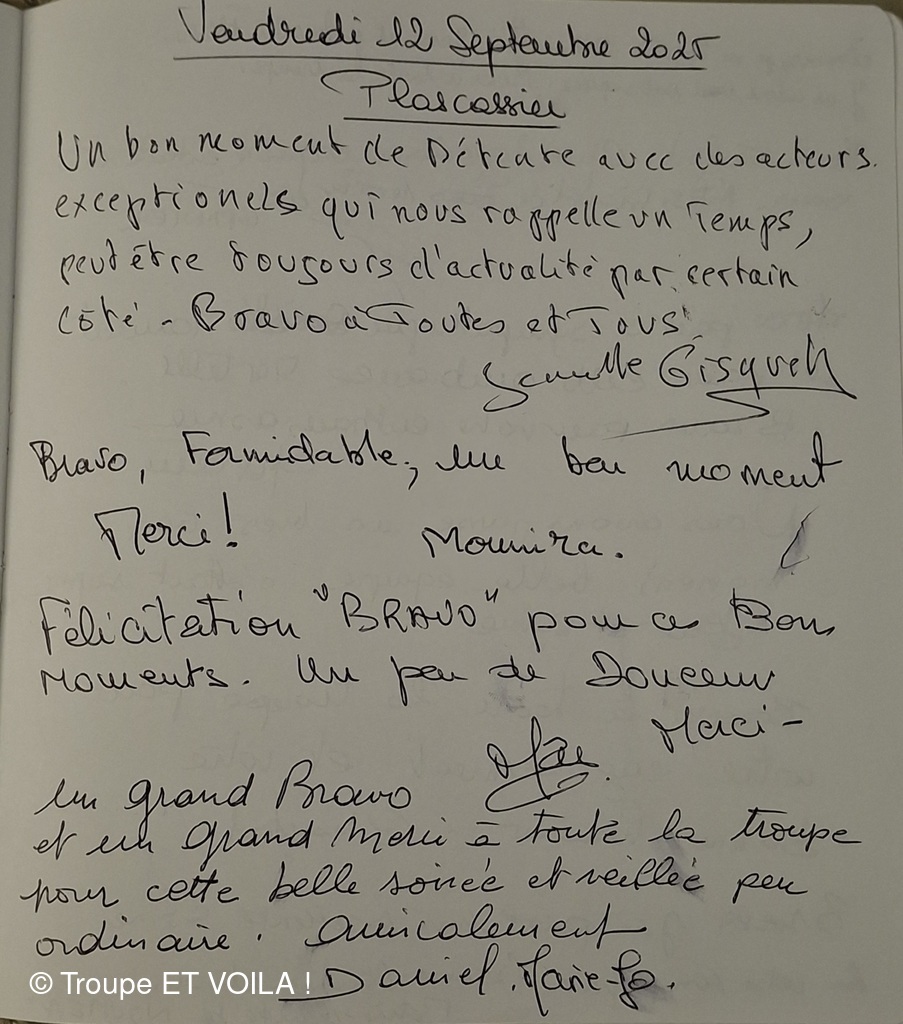 Vendredi 12 Septembre 2025
Plascassier
Un bon moment de Détente avec des acteurs.
exceptionels qui nous rappelle un Temps,
peut être Tougours d'actualité par certain
côté - Bravo à Toutes et Tous
Gisquet
Bravo, Formidable, un bon moment
Merci! Mounira.
Félicitation "BRAVO" pour ce Bon
Moments. Un peu de Douceur
Merci -
Un grand Bravo
et un grand merci à toute la troupe
pour cette belle soirée et veillée peu
ordinaire. Amicalement
Daniel. Marie-Jo.
© Troupe ET VOILA !